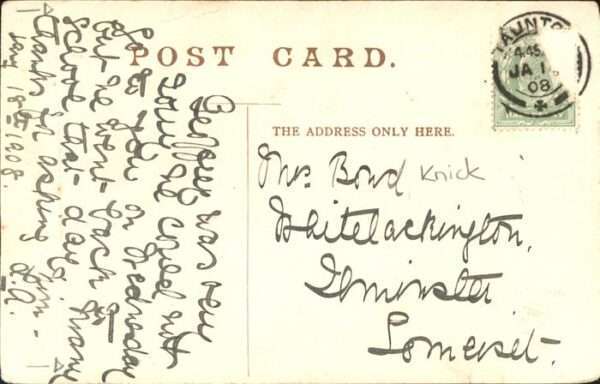 POST CARD.
THE ADDRESS ONLY HERE.
TAUNTO
4.45
JA 1
08
was very
sorry he could not
go to you on Wednesday
but he went back to
School that day. Many
thanks for asking him -
Jany 18th 1908.
Mrs Bond Knick
Whitelackington,
Ilminster
Somerset.